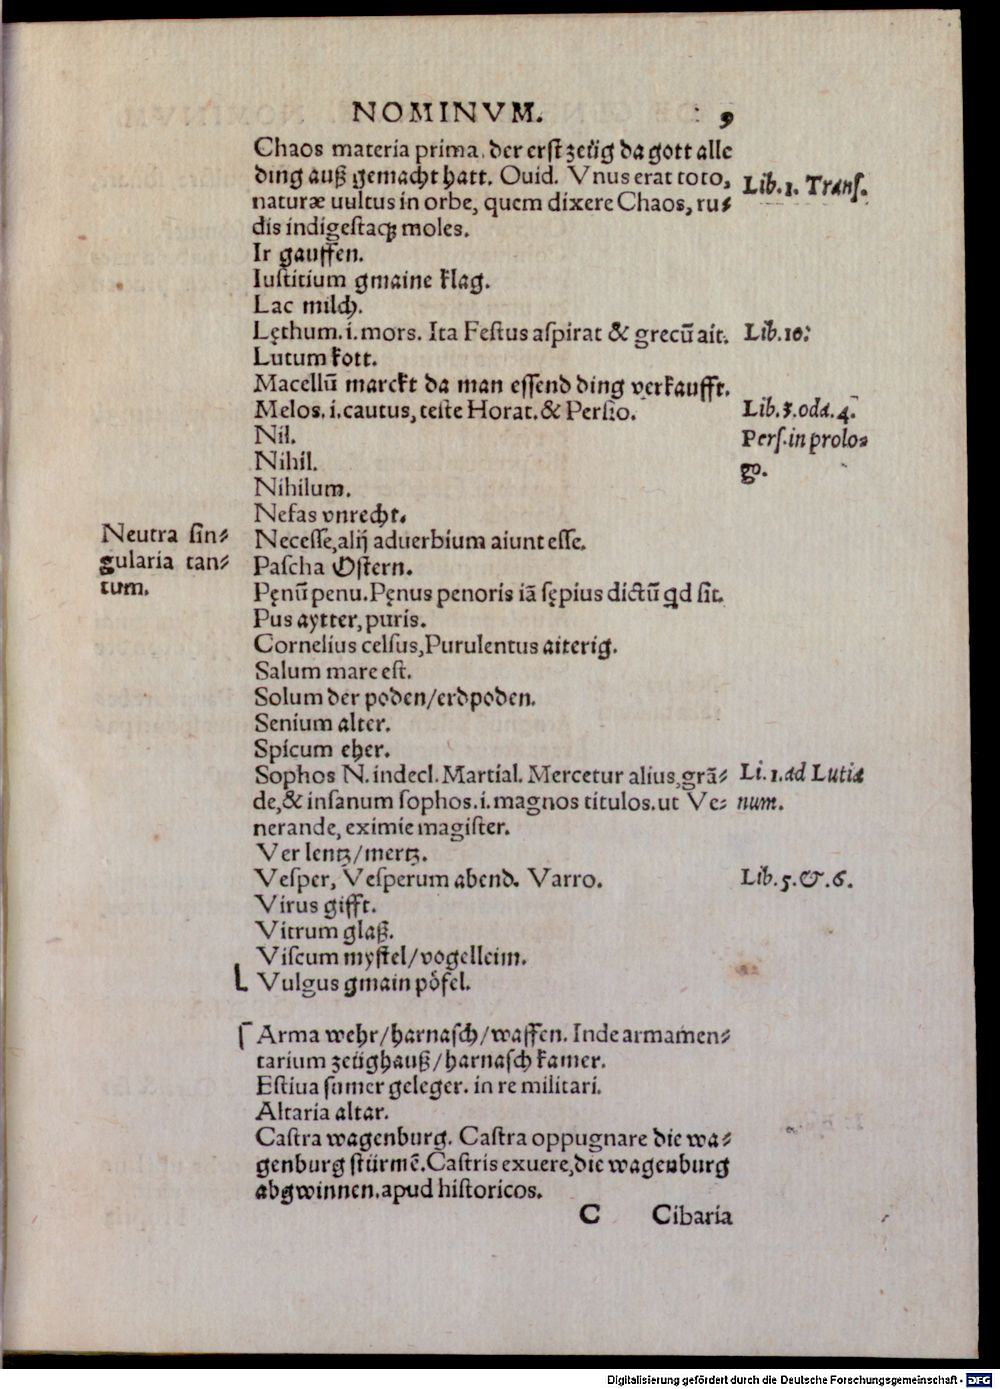 NOMINVM. 9
Chaos materia prima, der erſt zeüg da gott alle
ding auß gemacht hatt. Ouid. Vnus erat toto,
Lib. 1. Tranſ.
naturæ uultus in orbe, quem dixere Chaos, ru⸗
dis indigeſtaq́ꝫ moles.
Ir gauffen.
Iuſtitium gmaine klag.
Lac milch.
Lęthum. i. mors. Ita Feſtus aſpirat & grecũ ait.
Lib. 10:
Lutum kott.
Macellũ marckt da man eſſend ding verkaufft.
Melos. i. cautus, teſte Horat. & Perſio.
Lib. 3. oda. 4.
Nil.
Perſ. in prolo⸗
Nihil.
go.
Nihilum.
Nefas vnrecht.
Neutra ſin⸗
gularia tan⸗
tum.
Neceſſe, alij aduerbium aiunt eſſe.
Paſcha Oſtern.
Pęnũ penu. Pęnus penoris iã ſępius dictũ qd ſit.
Pus aytter, puris.
Cornelius celſus, Purulentus aiterig.
Salum mare eſt.
Solum der poden/erdpoden.
Senium alter.
Spicum eher.
Sophos N. indecl. Martial. Mercetur alius, grã⸗
Li. 1. ad Lutia
de, & inſanum ſophos. i. magnos titulos. ut Ve⸗
num.
nerande, eximie magiſter.
Ver lentz/mertz.
Veſper, Veſperum abend. Varro.
Lib. 5. &. 6.
Virus gifft.
Vitrum glaß.
Viſcum myſtel/vogelleim.
Vulgus gmain pöfel.
Arma wehr/harnaſch/waffen. Inde armamen⸗
tarium zeüghauß/harnaſch kamer.
Eſtiua ſumer geleger. in re militari.
Altaria altar.
Caſtra wagenburg. Caſtra oppugnare die wa⸗
genburg ſtürmẽ. Caſtris exuere, die wagenburg
abgwinnen. apud hiſtoricos.
C Cibaria
Digitalisierung gefördert durch die Deutsche Forschungsgemeinschaft - DFG